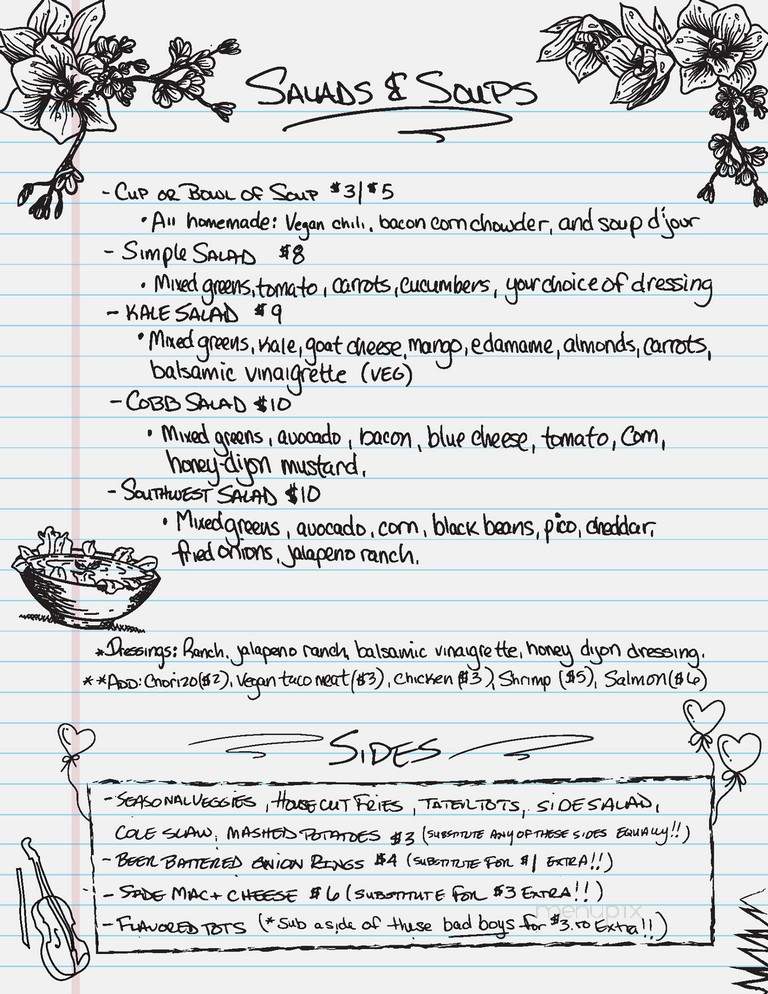 SALADS & SOUPS
- CUP OR BOWL OF SOUP $3/$5
• All homemade: Vegan chili, bacon corn chowder, and soup d'jour
- SIMPLE SALAD $8
• Mixed greens, tomato, carrots, cucumbers, your choice of dressing
- KALE SALAD $9
• Mixed greens, kale, goat cheese, mango, edamame, almonds, carrots,
balsamic vinaigrette (VEG)
- COBB SALAD $10
• Mixed greens, avocado, bacon, blue cheese, tomato, corn,
honey-dijon mustard.
- SOUTHWEST SALAD $10
• Mixed greens, avocado, corn, black beans, pico, cheddar,
fried onions, jalapeno ranch.
*Dressings: Ranch, jalapeno ranch, balsamic vinaigrette, honey dijon dressing.
**ADD: Chorizo ($2), Vegan taco meat ($3), Chicken ($3), Shrimp ($5), Salmon ($6)
SIDES
- SEASONAL VEGGIES, HOUSE CUT FRIES, TATER TOTS, SIDE SALAD,
COLE SLAW, MASHED POTATOES $3 (SUBSTITUTE ANY OF THESE SIDES EQUALLY!!)
- BEER BATTERED ONION RINGS $4 (SUBSTITUTE FOR $1 EXTRA!!)
- SIDE MAC + CHEESE $6 (SUBSTITUTE FOR $3 EXTRA!!)
- FLAVORED TOTS (*Sub a side of these bad boys for $3.50 Extra!!)
menupix